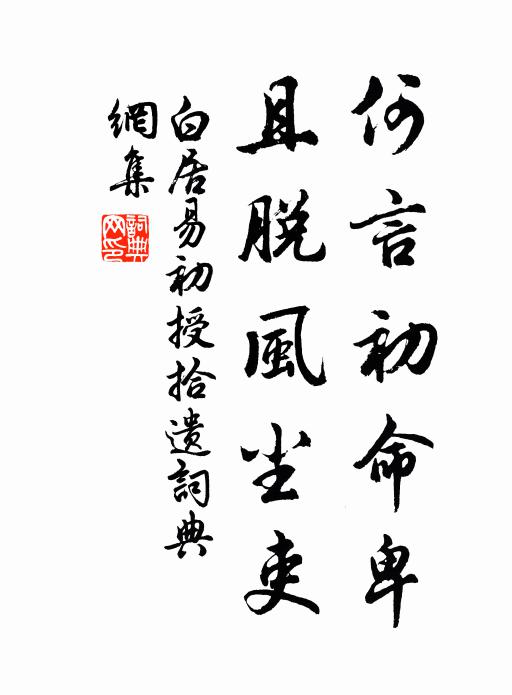 何言初命卑
且脱風尘吏
白居易初授拾遺詞典
網集
詞典
网印